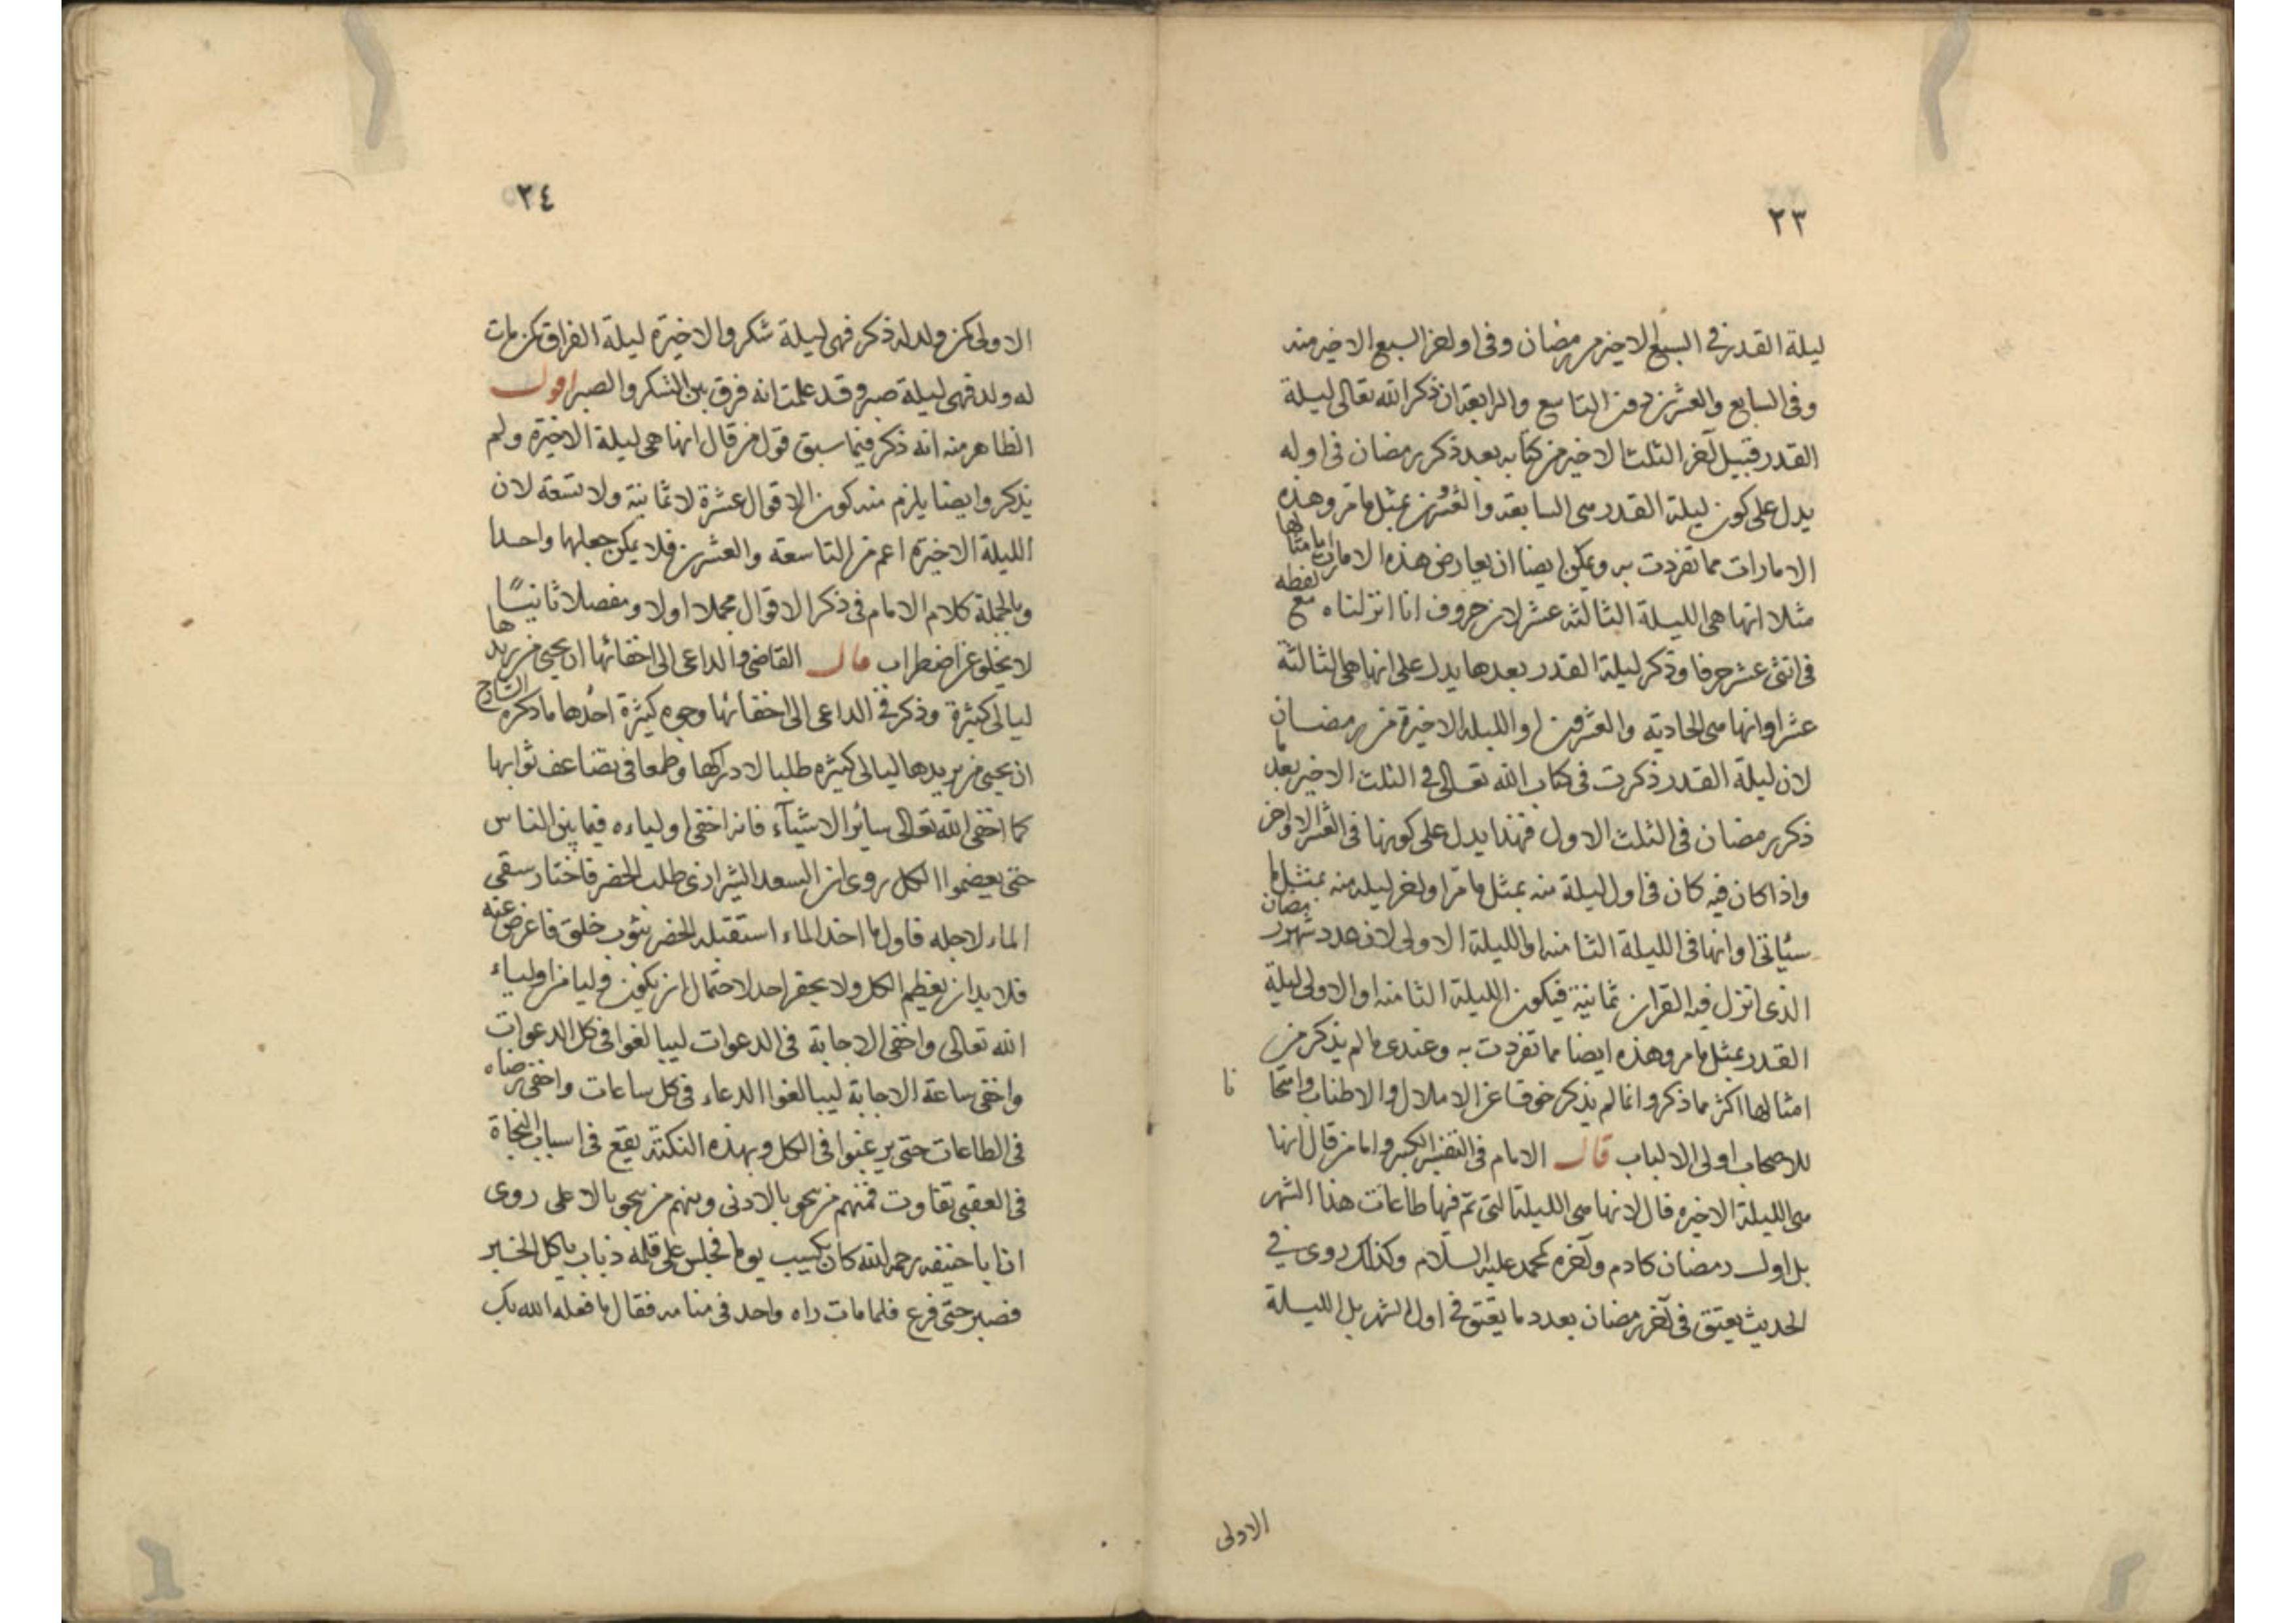 ٢٣
ليلة القدر في السبع الاخير من رمضان وفى اول اخر السبع الاخير منه
وفى السابع والعشرين دون التاسع والرابعة ان ذكر الله تعالى ليلة
القدر قبيل آخر الثلث الاخير من كتابه بعد ذكر رمضان فى اوله
يدل على كون ليلة القدر هى السابعة والعشرين بمثل ما مر وهذه
الامارات مما تفردت به ويمكن ايضا ان يعارض هذه الامارات بامثالها
مثلا انها هى الليلة الثالثة عشر لان حروف انا انزلناه مع لفظه
فى اثنى عشر حرفا وذكر ليلة القدر بعدها يدل على انها هى الثالثة
عشر او انها هى الحادية والعشرون او الليلة الاخيرة من رمضان
لان ليلة القدر ذكرت فى كتاب الله تعالى فى الثلث الاخير بعد ما
ذكر رمضان فى الثلث الاول فهذا يدل على كونها فى العشر الاواخر
واذا كان فيه كان فى اول ليلة منه بمثل ما مر او اخر ليلة منه بمثل ما
سيأتى او انها فى الليلة الثامنة او الليلة الاولى لان عدد شهر رمضان
الذى انزل فيه القران ثمانية فيكون الليلة الثامنة او الاولى ليلة
القدر بمثل ما مر وهذه ايضا مما تفردت به وعندى ما لم يذكر من
امثالها اكثر مما ذكر وانما لم يذكر خوفا عن الاملال والاطناب وامتحانا
للاصحاب اولى الالباب قال الامام فى التفسير الكبير واما من قال انها
هى الليلة الاخيره قال لانها هى الليلة التى تتم فيها طاعات هذا الشهر
بل اول رمضان كادم وآخره كمحمد عليه السلام وكذلك روى في
الحديث يعتق فى آخر رمضان بعدد ما يعتق فى اول الشهر بل الليلة
الاولى
٢٤
الاولى كمن ولد له ذكر فهى ليلة شكر والاخيرة ليلة الفراق كمن مات
له ولد فهى ليلة صبر وقد علمت انه فرق بين الشكر والصبر اقول
الظاهر منه انه ذكر فيما سبق قول من قال انها هى ليلة الاخيرة ولم
يذكر وايضا يلزم منه كون الاقوال عشرة لا ثمانية ولا تسعة لان
الليلة الاخيرة اعم من التاسعة والعشرين فلا يمكن جعلها واحدا
وبالجملة كلام الامام فى ذكر الاقوال مجملا اولا ومفصلا ثانيًا
لا يخلو عن اضطراب قال القاضى والداعى الى اخفائها ان يحيى من يريدها
ليالى كثيرة وذكر فى الداعى الى اخفائها وجوه كثيرة احدها ما ذكره الشارح
ان يحيى من يريدها ليالى كثيره طلبا لادراكها وطمعا فى تضاعف ثوابها
كما اخفى الله تعالى سائر الاشيآء فانه اخفى اولياءه فيما بين الناس
حتى يعضموا الكل روى ان السعد الشيرازى طلب الخضر فاختار سقى
الماء لاجله فاول ما اخذ الماء استقبله الخضر بثوب خلق فاعرض عنه
فلا بد ان يعظم الكل ولا يحقر احد لاحتمال ان يكون وليا من اولياء
الله تعالى واخفى الاجابة فى الدعوات ليبالغوا فى كل الدعوات
واخفى ساعة الاجابة ليبالغوا الدعاء فى كل ساعات واخفى رضاه
فى الطاعات حتى يرغبوا فى الكل وبهذه النكتة يقع فى اسباب النجاة
فى العقبى تفاوت فمنهم من ينجو بالادنى ومنهم من ينجو بالاعلى روى
ان ابا حنيفه رحمه الله كان يكسب يوما فجلس على قلمه ذباب ياكل الحبر
فصبر حتى فرغ فلما مات راه واحد فى منامه فقال ما فعله الله بك